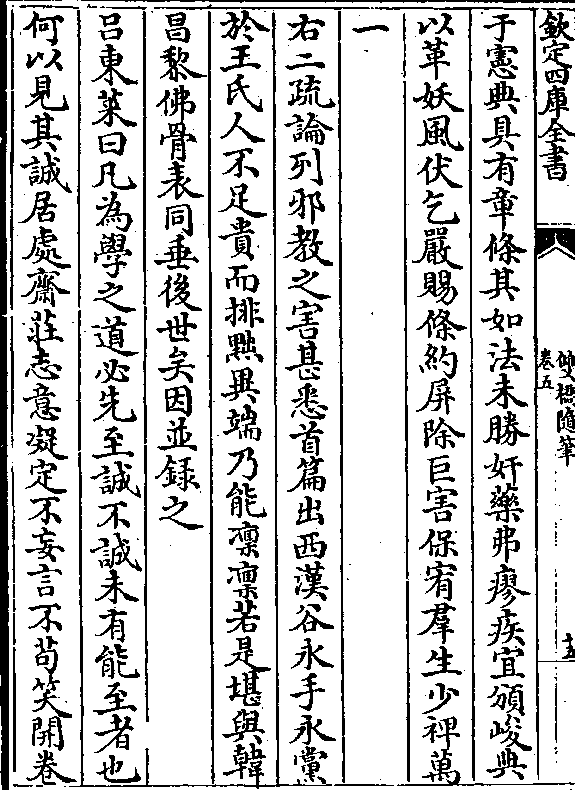 欽定四庫全書
雙橋隨筆
卷五
十五
于憲典具有章條其如法未勝奸藥弗瘳疾宜頒峻典
以革妖風伏乞嚴賜條約屏除巨害保宥羣生少裨萬
一
右二疏論列邪教之害甚悉首篇出西漢谷永手永黨
於王氏人不足貴而排黜異端乃能凜凜若是堪與韓
昌黎佛骨表同垂後世矣因並錄之
呂東萊曰凡為學之道必先至誠不誠未有能至者也
何以見其誠居處齋莊志意凝定不妄言不苟笑開卷